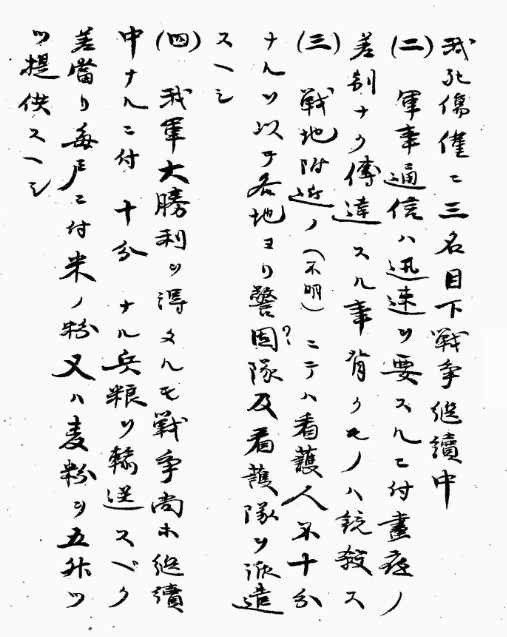 我死傷僅ニ三名目下戦争継續中
(二) 軍事通信ハ迅速ヲ要スルニ付晝夜ノ
差別ナク傳達スル事背クモノハ銃殺ス
(三) 戦地附近ノ(不明)ニテハ看護人不十分
ナルヲ以テ各地ヨリ警固?隊及看護隊ヲ派遣
スヘシ
(四) 我軍大勝利ヲ得タルモ戦争尚ホ継續
中ナルニ付十分ナル兵粮ヲ輸送スベク
差當リ毎戸ニ付米ノ粉又ハ麦粉ヲ五升ヅツ
ヲ提供スヘシ